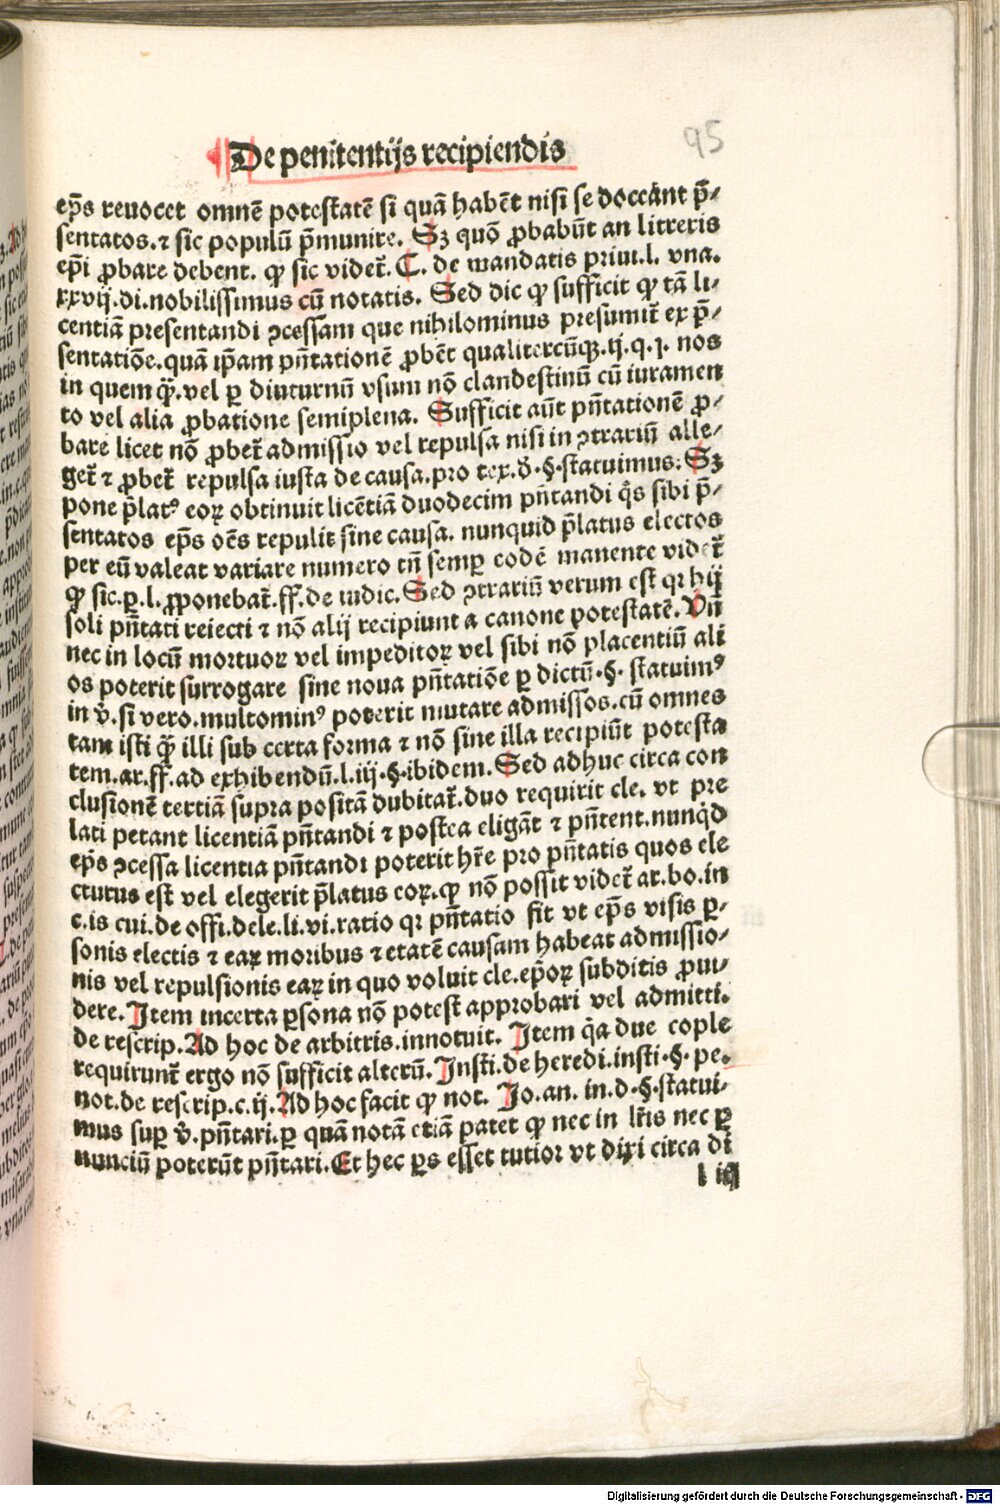 95
De penitentijs recipiendis
ep̄s reuocet omnē potestatē si quā habēt nisi se doceānt p̄-
sentatos. ⁊ sic populū p̄munire. Sꝫ quō ꝓbabūt an litreris
ep̄i ꝓbare debent. ꝙ sic videt̄. C. de mandatis priui. l. vna.
xxvij. di. nobilissimus cū notatis. Sed dic ꝙ sufficit ꝙ tā li-
centiā presentandi ꝯcessam que nihilominus presumit̄ ex p̄-
sentatiōe. quā ip̄am pn̄tationē ꝓbēt qualitercūqꝫ. ij. q. j. nos
in quem q̄. vel ꝑ diuturnū vsum nō clandestinū cū iuramen
to vel alia ꝓbatione semiplena. Sufficit aūt pn̄tationē ꝓ-
bare licet nō ꝓbet̄ admissio vel repulsa nisi in ꝯtrariū alle-
get̄ ⁊ ꝓbet̄ repulsa iusta de causa. pro tex. d̄. §. statuimus: Sꝫ
pone p̄latꝰ eoꝝ obtinuit licētiā duodecim pn̄tandi q̄s sibi p̄-
sentatos ep̄s oēs repulit sine causa. nunquid p̄latus electos
per eū valeat variare numero tn̄ semꝑ eodē manente videt̄
ꝙ sic. ꝑ. l. ꝓponebat̄. ff. de iudic. Sed ꝯtrariū verum est qꝛ hij
soli pn̄tati reiecti ⁊ nō alij recipiunt a canone potestatē. Vn̄
nec in locū mortuoꝝ vel impeditoꝝ vel sibi nō placentiū ali
os poterit surrogare sine noua pn̄tatiōe ꝑ dictū. §. statuimꝰ
in v̄. si vero. multominꝰ poterit mutare admissos. cū omnes
tam isti q̄ illi sub certa forma ⁊ nō sine illa recipiūt potesta
tem. ar. ff. ad exhibendū. l. iij. §. ibidem. Sed adhuc circa con
clusionē tertiā supra positā dubitat̄. duo requirit cle. vt pre
lati petant licentiā pn̄tandi ⁊ postea eligāt ⁊ pn̄tent. nunq̇d
ep̄s ꝯcessa licentia pn̄tandi poterit hr̄e pro pn̄tatis quos ele
cturus est vel elegerit p̄latus eoꝝ. ꝙ nō possit videt̄ ar. bo. in
c. is cui. de offi. dele. li. vi. ratio qꝛ pn̄tatio fit vt ep̄s visis ꝑ-
sonis electis ⁊ eaꝝ moribus ⁊ etatē causam habeat admissio-
nis vel repulsionis eaꝝ in quo voluit cle. ep̄oꝝ subditis ꝓui-
dere. Item incerta ꝑsona nō potest approbari vel admitti.
de rescrip. Ad hoc de arbitris. innotuit. Item q̇a due cople
requirunt̄ ergo nō sufficit alterū. Insti. de heredi. insti. §. pe.
not. de rescrip. c. ij. Ad hoc facit ꝙ not. Jo. an. in. d. §. statui-
mus suꝑ v̄. pn̄tari. ꝑ quā notā etiā patet ꝙ nec in lr̄is nec ꝑ
nunciū poterūt pn̄tari. Et hec ꝑs esset tutior vt dixi circa di
l iij
Digitalisierung gefördert durch die Deutsche Forschungsgemeinschaft - DFG